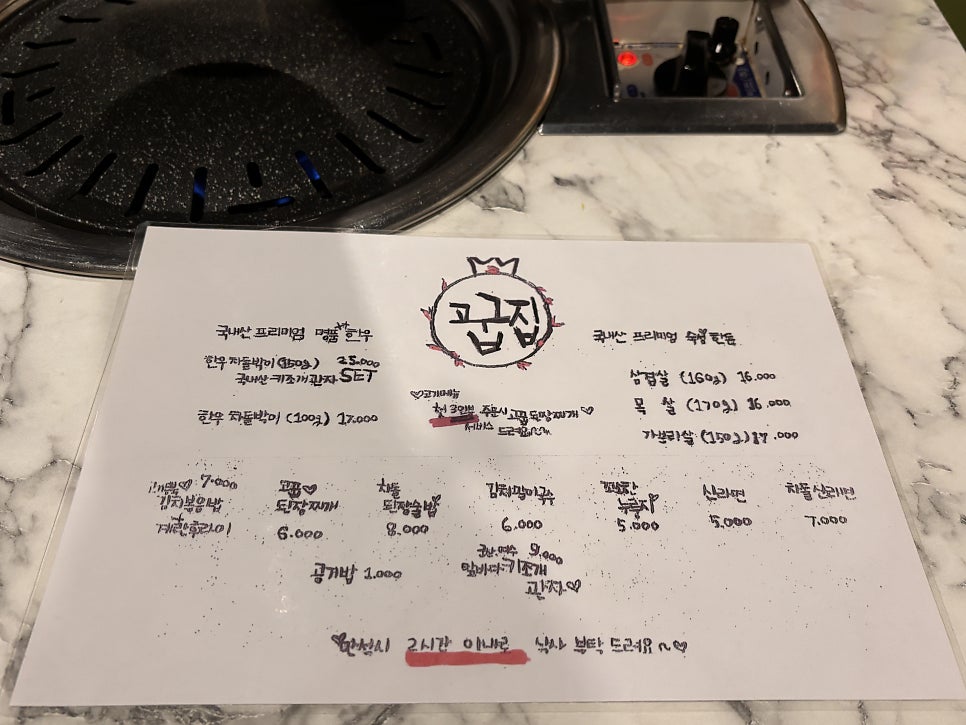 고굽집
국내산 프리미엄 명품 한우
한우 차돌박이 (150g) 25.000
국내산 키조개 관자 SET
한우 차돌박이 (100g) 17.000
♡고기메뉴
첫 3인분 주문시 고굽 된장찌개 ♡
서비스
드려요~
국내산 프리미엄 숙성 한돈
삼겹살 (160g) 16.000
목 살 (170g) 16.000
가브리살 (150g) 17.000
7.000
김치볶음밥
+
계란후라이
고굽♡
된장찌개
6.000
차돌
된장술밥
8.000
김치말이국수
6.000
누룽지
5.000
신라면
5.000
차돌 신라면
7.000
공기밥 1.000
군산.여수 9.000
앞바다 키조개
관자♡
♥만석시 2시간 이내로 식사 부탁 드려요~♡